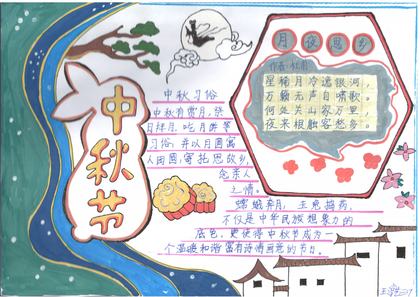 中秋节
中秋习俗
中秋有赏月、祭
月拜月、吃月饼等
习俗，并以月圆寓
人团圆，寄托思故乡，
念亲人
之情。
嫦娥奔月，玉兔捣药，
不仅是中华民族想象力的
底色，更使得中秋节成为一
个温暖和谐富有诗情画意的节日。
月夜思乡
作者：杜甫
星稀月冷逸银河，
万籁无声自啸歌。
何处关山家万里，
夜来枨触客愁多。